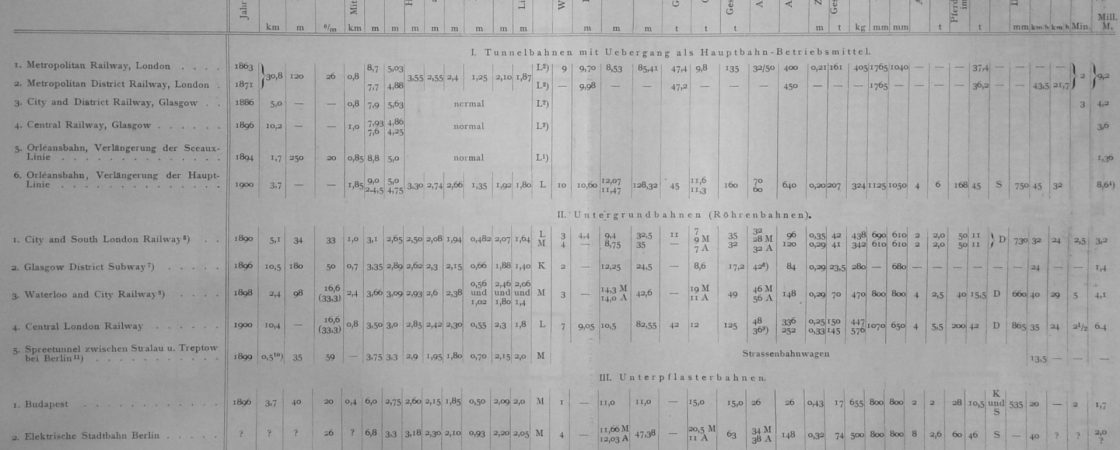 Jahr
Mit
km m ⁰/₀₀ km m m m m m m m m m m m t t t t kg mm mm t t mm km/h km/h Min. Mill. M.
I. Tunnelbahnen mit Uebergang als Hauptbahn-Betriebsmittel.
1. Metropolitan Railway, London . . . . 1863 30,8 120 26 0,8 8,7 5,03 3,55 2,55 2,4 1,25 2,10 1,87 L²) 9 9,70 8,53 85,41 47,4 9,8 135 32/50 400 0,21 161 405 1765 1040 — — — 37,4 — — — — 2 9,2
2. Metropolitan District Railway, London . 1871 7,7 4,88 L²) — 9,98 — — 47,2 — — — 450 — — — 1765 — — — — 36,2 — — 43,5 21,7
3. City and District Railway, Glasgow . . 1886 5,0 — — 0,8 7,9 5,63 normal L²) 3 4,2
4. Central Railway, Glasgow . . . . . . 1896 10,2 — — 1,0 7,93 4,86 normal L²) 3,6
7,6 4,25
5. Orléansbahn, Verlängerung der Sceaux-
Linie . . . . . . . . . . . . . 1894 1,7 250 20 0,85 8,8 5,0 normal L¹) 1,36
6. Orléansbahn, Verlängerung der Haupt-
Linie . . . . . . . . . . . . . 1900 3,7 — — 1,85 9,0 5,0 3,30 2,74 2,66 1,35 1,92 1,80 L 10 10,60 12,07 128,32 45 11,6 160 70 640 0,20 207 324 1125 1050 4 6 168 45 S 750 45 32 8,6⁴)
2.4,5 4,75 11,47 11,3 60
II. Untergrundbahnen (Röhrenbahnen).
1. City and South London Railway⁵) . . 1890 5,1 34 33 1,0 3,1 2,65 2,50 2,08 1,94 0,482 2,07 1,64 L 3 4,4 9,4 32,5 11 7 35 32 96 0,35 42 438 690 610 2 2,0 50 11 D 730 32 24 2,5 3,2
M 4 — 8,75 35 — 9 M 28 M
7 A 32 32 A 120 0,29 41 342 610 610 2 2,0 50 11
2. Glasgow District Subway⁷) . . . . . 1896 10,5 180 50 0,7 3,35 2,89 2,62 2,3 2,15 0,66 1,88 1,40 K 2 — 12,25 24,5 — 8,6 17,2 42⁸) 84 0,29 23,5 280 — 680 — — — — — — 24 — — 1,4
3. Waterloo and City Railway⁹) . . . . 1898 2,4 98 16,6 (33,3) 2,4 3,66 3,09 2,93 2,6 2,38 0,56 und 1,02 2,46 und 1,80 2,06 und 1,4 M 3 — 14,3 M 42,6 — 19 M 49 46 M 148 0,29 70 470 800 800 4 2,5 40 15,5 D 660 40 29 5 4,1
14,0 A 11 A 56 A
4. Central London Railway . . . . . . 1900 10,4 — 16,6 (33,3) 0,8 3,50 3,0 2,85 2,42 2,30 0,55 2,3 1,8 L 7 9,05 10,5 82,55 42 12 125 48 336 0,25 150 447 1070 650 4 5,5 200 42 D 865 35 24 2½ 6,4
36³) 252 0,33 145 576
5. Spreetunnel zwischen Stralau u. Treptow
bei Berlin¹¹) . . . . . . . . . . 1899 0,5¹⁰) 35 59 — 3,75 3,3 2,9 1,95 1,80 0,70 2,15 2,0 M Strassenbahnwagen 13,5 — — —
III. Unterpflasterbahnen.
1. Budapest . . . . . . . . . . . 1896 3,7 40 20 0,4 6,0 2,75 2,60 2,15 1,85 0,50 2,09 2,0 M 1 — 11,0 11,0 — 15,0 15,0 26 26 0,43 17 655 800 800 2 2 28 10,5 K und S 535 20 — 2 1,7
2. Elektrische Stadtbahn Berlin . . . . . ? ? ? 26 ? 6,8 3,3 3,18 2,30 2,10 0,93 2,20 2,05 M 4 — 11,66 M 47,38 — 20,5 M 63 34 M 148 0,32 74 500 800 800 8 2,6 60 46 S — 40 ? ? 2,0 ?
12,03 A 11 A 38 A